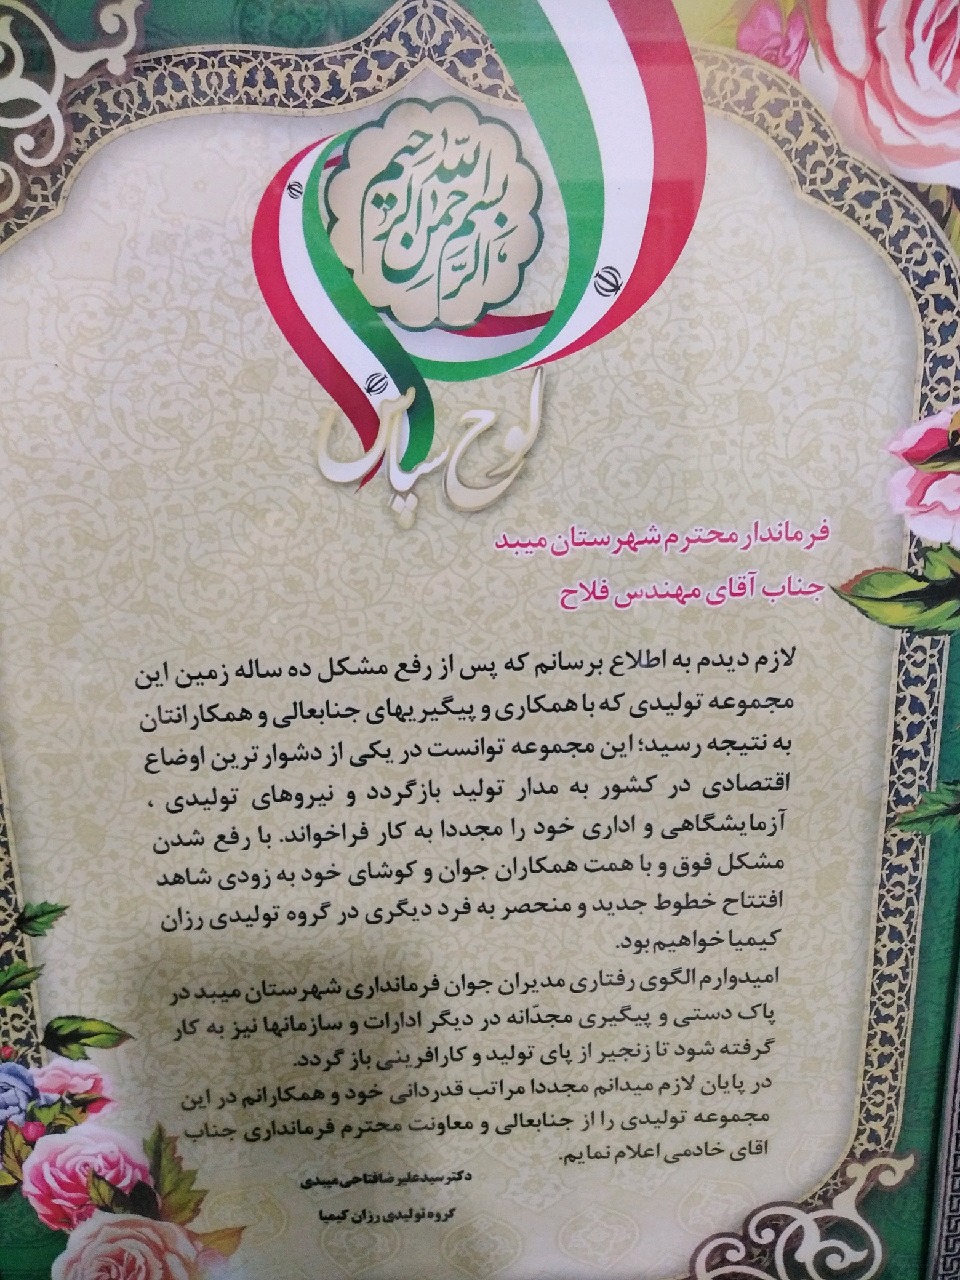 بسم الله الرحمن الرحیم
لوح سپاس
فرماندار محترم شهرستان میبد
جناب آقای مهندس فلاح
لازم دیدم به اطلاع برسانم که پس از رفع مشکل ده ساله زمین این
مجموعه تولیدی که با همکاری و پیگیریهای جنابعالی و همکارانتان
به نتیجه رسید؛ این مجموعه توانست در یکی از دشوار ترین اوضاع
اقتصادی در کشور به مدار تولید بازگردد و نیروهای تولیدی ،
آزمایشگاهی و اداری خود را مجددا به کار فراخواند. با رفع شدن
مشکل فوق و با همت همکاران جوان و کوشای خود به زودی شاهد
افتتاح خطوط جدید و منحصر به فرد دیگری در گروه تولیدی رزان
کیمیا خواهیم بود.
امیدوارم الگوی رفتاری مدیران جوان فرمانداری شهرستان میبد در
پاک دستی و پیگیری مجدّانه در دیگر ادارات و سازمانها نیز به کار
گرفته شود تا زنجیر از پای تولید و کارافرینی باز گردد.
در پایان لازم میدانم مجددا مراتب قدردانی خود و همکارانم در این
مجموعه تولیدی را از جنابعالی و معاونت محترم فرمانداری جناب
اقای خادمی اعلام نمایم.
دکتر سید علیرضا فتاحی میبدی
گروه تولیدی رزان کیمیا